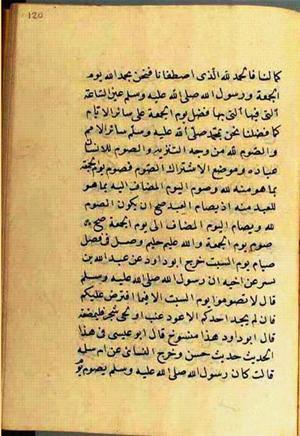 120
كمالنا فالحمد لله الذي اصطفانا فنحن بحمد الله يوم
الجمعة ورسول الله صلى الله عليه وسلم عين الساعة
التي فيها التي بها فضل يوم الجمعة على سائر الايام
كما فضلنا نحن بمحمد صلى الله عليه وسلم سائر الامم
والصوم لله من وجه التنزيه والصوم للانسان
عبادة وموضع الاشتراك الصوم فصوم يوم الجمعة
بما هو منه لله وصوم اليوم المضاف اليه بما هو
للعبد منه اذ بصيام العبد صح ان يكون الصوم
لله وبصيام اليوم المضاف الى يوم الجمعة صح
صوم يوم الجمعة والله عليم حليم وصل في فصل
صيام يوم السبت خرج ابو داود عن عبد الله بن
بسر عن اخيه ان رسول الله صلى الله عليه وسلم
قال لا تصوموا يوم السبت الا فيما افترض عليكم
فان لم يجد احدكم الا عود عنب او لحى شجر فليمضغه
قال ابو داود هذا منسوخ قال ابو عيسى في هذا
الحديث حديث حسن وخرج النسائي عن ام سلمة
قالت كان رسول الله صلى الله عليه وسلم يصوم